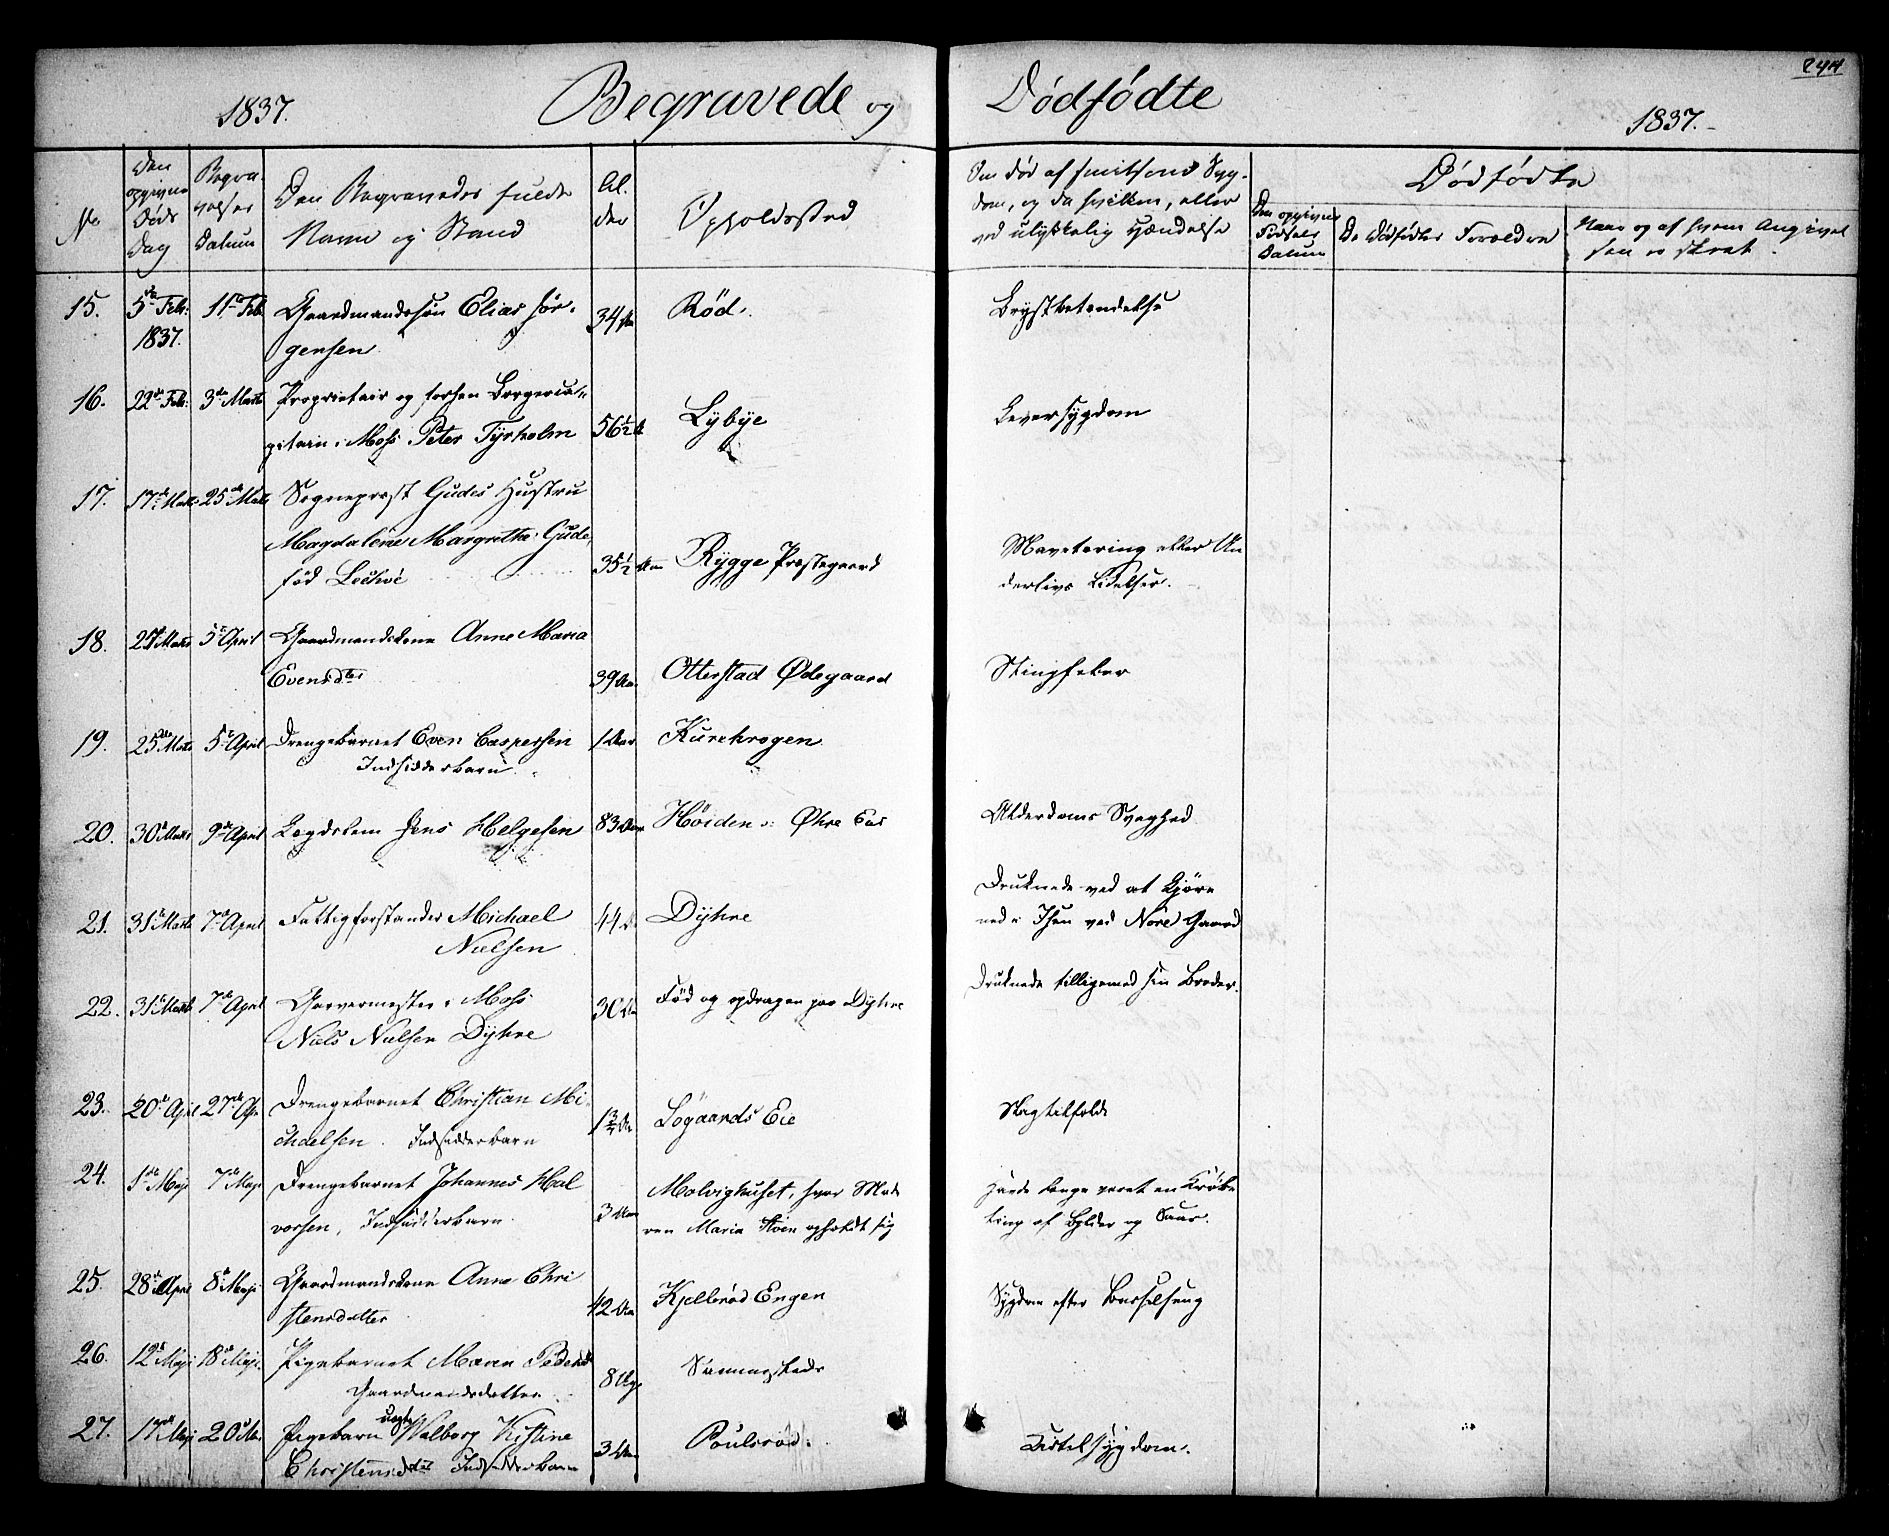 244
1837.
Begravede og Dødfødte
1837.
No
Den opgivne Døds Dag
Begravelses Datum
Den Begravedes fulde Navn og Stand
Alder
Opholdssted
Om død af smitsom Sygdom, og da hvilken, eller ved ulykkelig Hændelse
Dødfødte
Den opgivne Fødsels Datum
De Dødfødtes Forældre
Naar og af hvem Angivelsen er skeet.
15. 5te Feb: 1837. 11te Feb Gaardmandssøn Elias Jørgensen 34 Aar Rød. Brystbetændelse
16. 22de Feb: 3de Marts Proprietair og forhen Borgercapitain i Moss Peter Tyrholm 56½ A Lybye Leversygdom
17. 17de Marts 25de Marts Sognepræst Gudes Hustru Magdalene Margrethe Gude, fød 35½ Aar Rygge Præstegaard Mavetæring eller Underlivs Lidelser.
18. 27 Marts 5te April Gaardmandskone Anne Maria Evensdter 39 Aar. Otterstad Ødegaard Stingfeber
19. 25de Marts 5te April Drengebarnet Even Caspersen Indsidderbarn 1 Aar Kurekrogen
20. 30te Marts 9de April Lægdslem Jens Helgesen 83 Aar Høiden u: Øhre Eie Alderdoms Svaghed
21. 31te Marts 7de April Fattigforstander Michael Nielsen 44 A Dyhre Druknede ved at kjøre ned i Isen ved Nøre Gaard
22. 31te Marts 7de April Garvermester i Moss Niels Nielsen Dyhre 30 Aar Fød og opdragen paa Dyhre Druknede tilligemed sin Broder.
23. 20de April 27de Apr Drengebarnet Christian Michaelsen. Indsidderbarn 1¾ Aar Løgaards Eie Slagtilfælde
24. 1de Maji 7de Maji Drengebarnet Johannes Halvorsen, Indsidderbarn 3 Aar Molvighuset, hvor Moderen Maria opholdt sig havde længe været en Krøbling af Bylder og Saar.
25. 28de April 8de Maji Gaardmandskone Anne Christensdatter 42 Aar Kjellerød Engen Sygdom efter Barselseng
26. 12te Maji 18de Maji. Pigebarnet Maren Pedersd Gaardmandsdatter 8 Uger
27. 17de Maji 20 Ma. Pigebarn uægte Walborg Kistine Christensdatter Indsidderbarn 3 Aar Poulsrød. Kirtelsygdom.